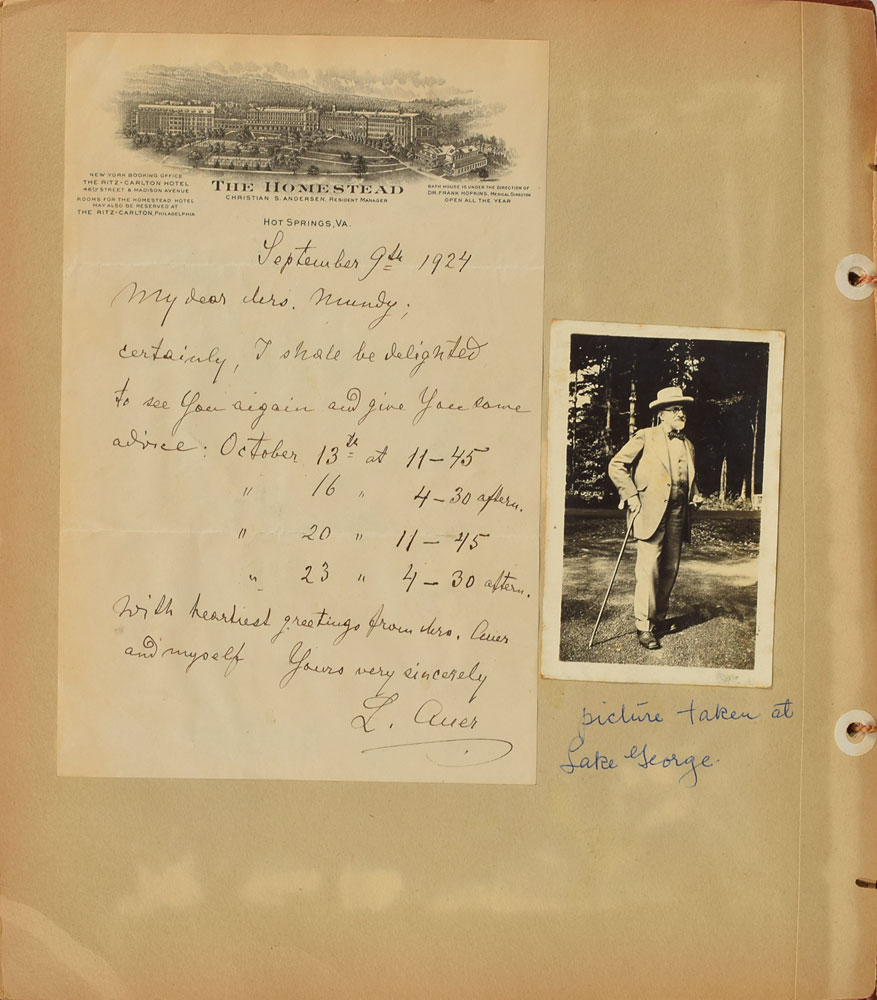 NEW YORK BOOKING OFFICE
THE RITZ-CARLTON HOTEL
46TH STREET & MADISON AVENUE
ROOMS FOR THE HOMESTEAD HOTEL
MAY ALSO BE RESERVED AT
THE RITZ-CARLTON, PHILADELPHIA
THE HOMESTEAD
CHRISTIAN S. ANDERSEN, RESIDENT MANAGER
BATH HOUSE IS UNDER THE DIRECTION OF
DR. FRANK HOPKINS, MEDICAL DIRECTOR
OPEN ALL THE YEAR
HOT SPRINGS, VA.
September 9th 1924
My dear Mrs. Mundy;
certainly, I shall be delighted
to see You aigain and give You some
advice: October 13th at 11-45
" 16 " 4-30 aftern.
" 20 " 11-45
" 23 " 4-30 aftern.
With heartiest greetings from Mrs. Auer
and myself Yours very sincerely
L. Auer
picture taken at
Lake George.